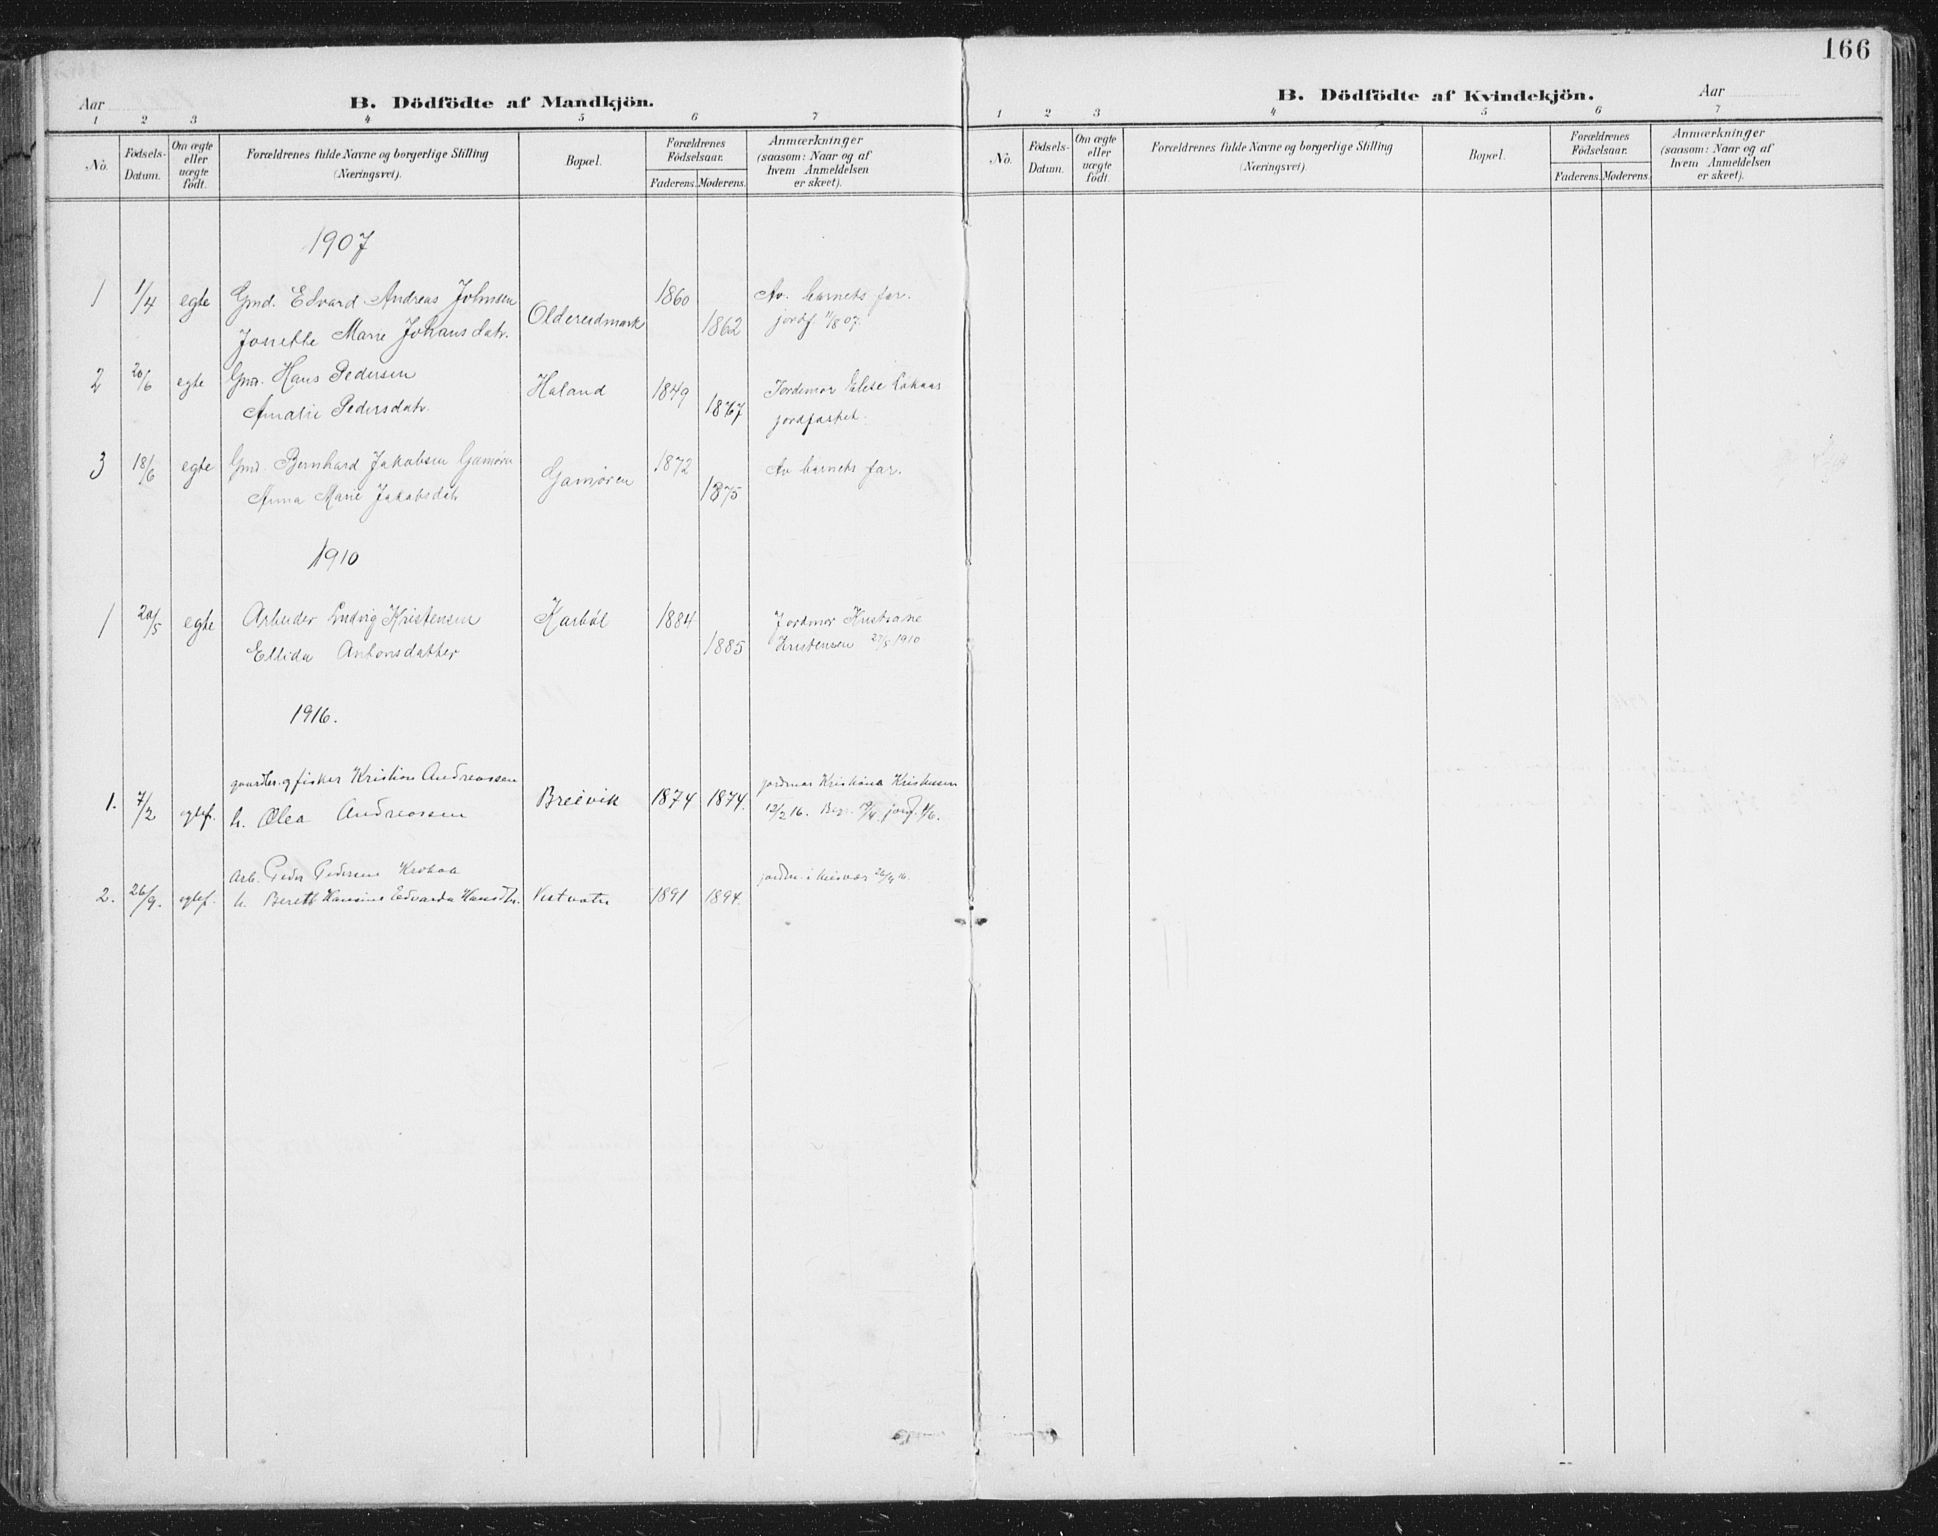 166
Aar B. Dödfödte af Mandkjön.
1 2 3 4 5 6 7
No. Födsels-Datum. Om ægte eller uægte födt. Forældrenes fulde Navne og borgerlige Stilling (Næringsvei). Bopæl. Forældrenes Födselsaar. Faderens. Moderens. Anmærkninger (saasom: Naar og af hvem Anmeldelsen er skeet).
1907
1 1/4 egte Gmd. Edvard Andreas Johnsen 1860 Av barnets far.
Josette Marie Johansdatr. Oldereidmark 1862 jordf. 11/8 07.
2 20/6 egte Gmd. Hans Pedersen Haland 1849 Jordemor
Amalie Pedersdatr. 1867 jordfastet.
3 18/6 egte Gmd. Bernhard Jakobsen Gamøren 1872 Av barnets far.
Anna Marie Jakobsdatr Gamøren 1875
1910
1 20/5 egte Arbeider Ludvig Kristensen Karbøl 1884 Jordmor Kristiane
Ellida Antonsdatter 1885 Kristensen 27/5 1910
1916.
gaardbr. og fisker Kristian Andreassen jordmor Kristiane Kristensen
1. 7/2 egtef. h. Olea Andreassen Breivik 1874 1874. 12/2 16.
Arb. Peder Pedersen
2. 26/9. egtef. h. Berett Hansine Edvarda Hansdtr. Vestvatn 1891 1894.
B. Dödfödte af Kvindekjön. Aar
1 2 3 4 5 6 7
No. Födsels-Datum. Om ægte eller uægte födt. Forældrenes fulde Navne og borgerlige Stilling (Næringsvei). Bopæl. Forældrenes Födselsaar. Faderens. Moderens. Anmærkninger (saasom: Naar og af hvem Anmeldelsen er skeet).